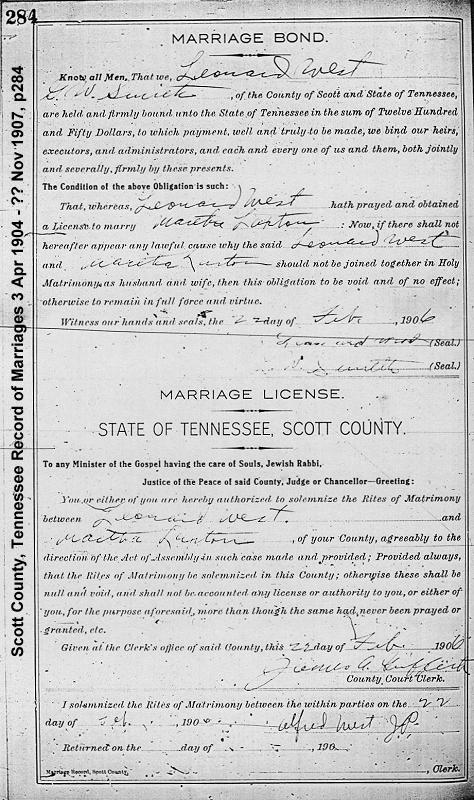 284
Scott County, Tennessee Record of Marriages 3 Apr 1904 - ?? Nov 1907, p284
MARRIAGE BOND.
Know all Men, That we, Leonard West
L. V. Smith, of the County of Scott and State of Tennessee,
are held and firmly bound unto the State of Tennessee in the sum of Twelve Hundred
and Fifty Dollars, to which payment, well and truly to be made, we bind our heirs,
executors, and administrators, and each and every one of us and them, both jointly
and severally, firmly by these presents.
The Condition of the above Obligation is such:
That, whereas, Leonard West hath prayed and obtained
a License to marry Martha Luxton : Now, if there shall not
hereafter appear any lawful cause why the said Leonard West
and Martha Luxton should not be joined together in Holy
Matrimony, as husband and wife, then this obligation to be void and of no effect;
otherwise to remain in full force and virtue.
Witness our hands and seals, the 22 day of Feb, 1906
Leonard West (Seal.)
Smith (Seal.)
MARRIAGE LICENSE.
STATE OF TENNESSEE, SCOTT COUNTY.
To any Minister of the Gospel having the care of Souls, Jewish Rabbi,
Justice of the Peace of said County, Judge or Chancellor—Greeting:
You, or either of you are hereby authorized to solemnize the Rites of Matrimony
between Leonard West. and
Martha Luxton, of your County, agreeably to the
direction of the Act of Assembly in such case made and provided; Provided always,
that the Rites of Matrimony be solemnized in this County; otherwise these shall be
null and void, and shall not be accounted any license or authority to you, or either of
you, for the purpose aforesaid, more than though the same had never been prayed or
granted, etc.
Given at the Clerk's office of said County, this 22 day of Feb 1906
County Court Clerk.
I solemnized the Rites of Matrimony between the within parties on the 22
day of Feb. 1906 Alfred West J.P.
Returned on the day of 190
Marriage Record, Scott County. , Clerk.